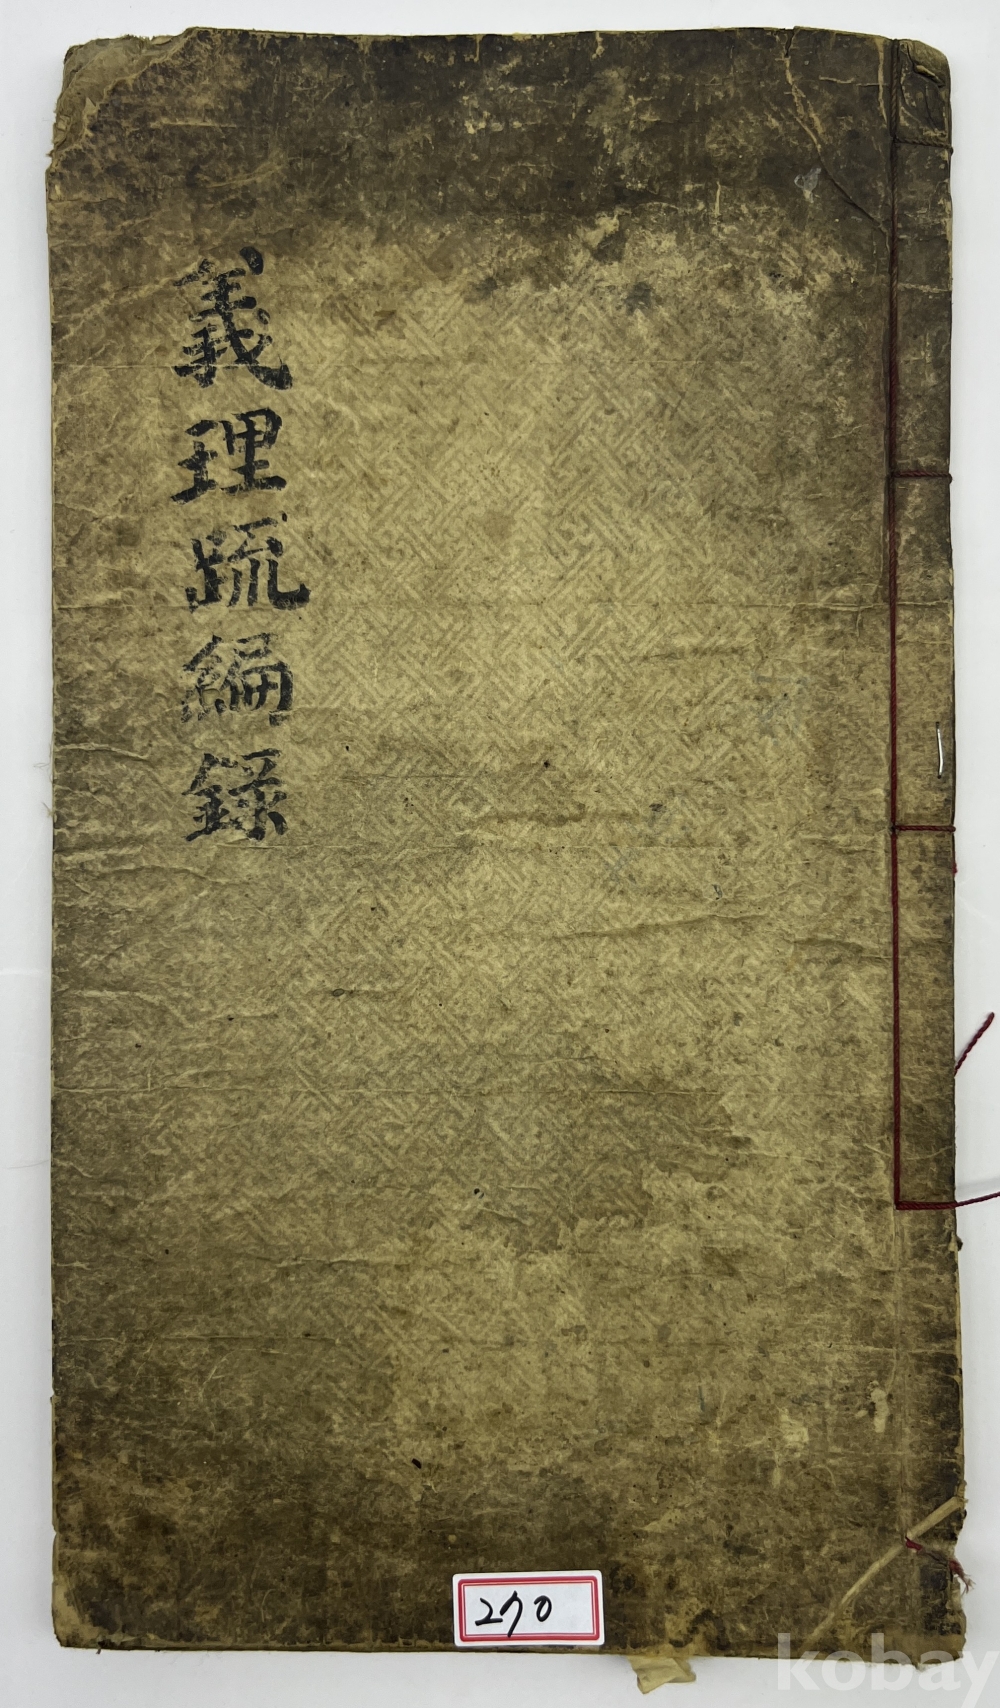 義理疏編錄
270
kobay